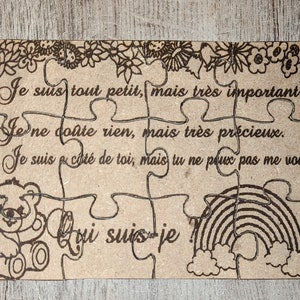 Je suis tout petit, mais très important
Je ne coûte rien, mais très précieux.
Je suis a côté de toi, mais tu ne peux pas me
Qui suis-je ?